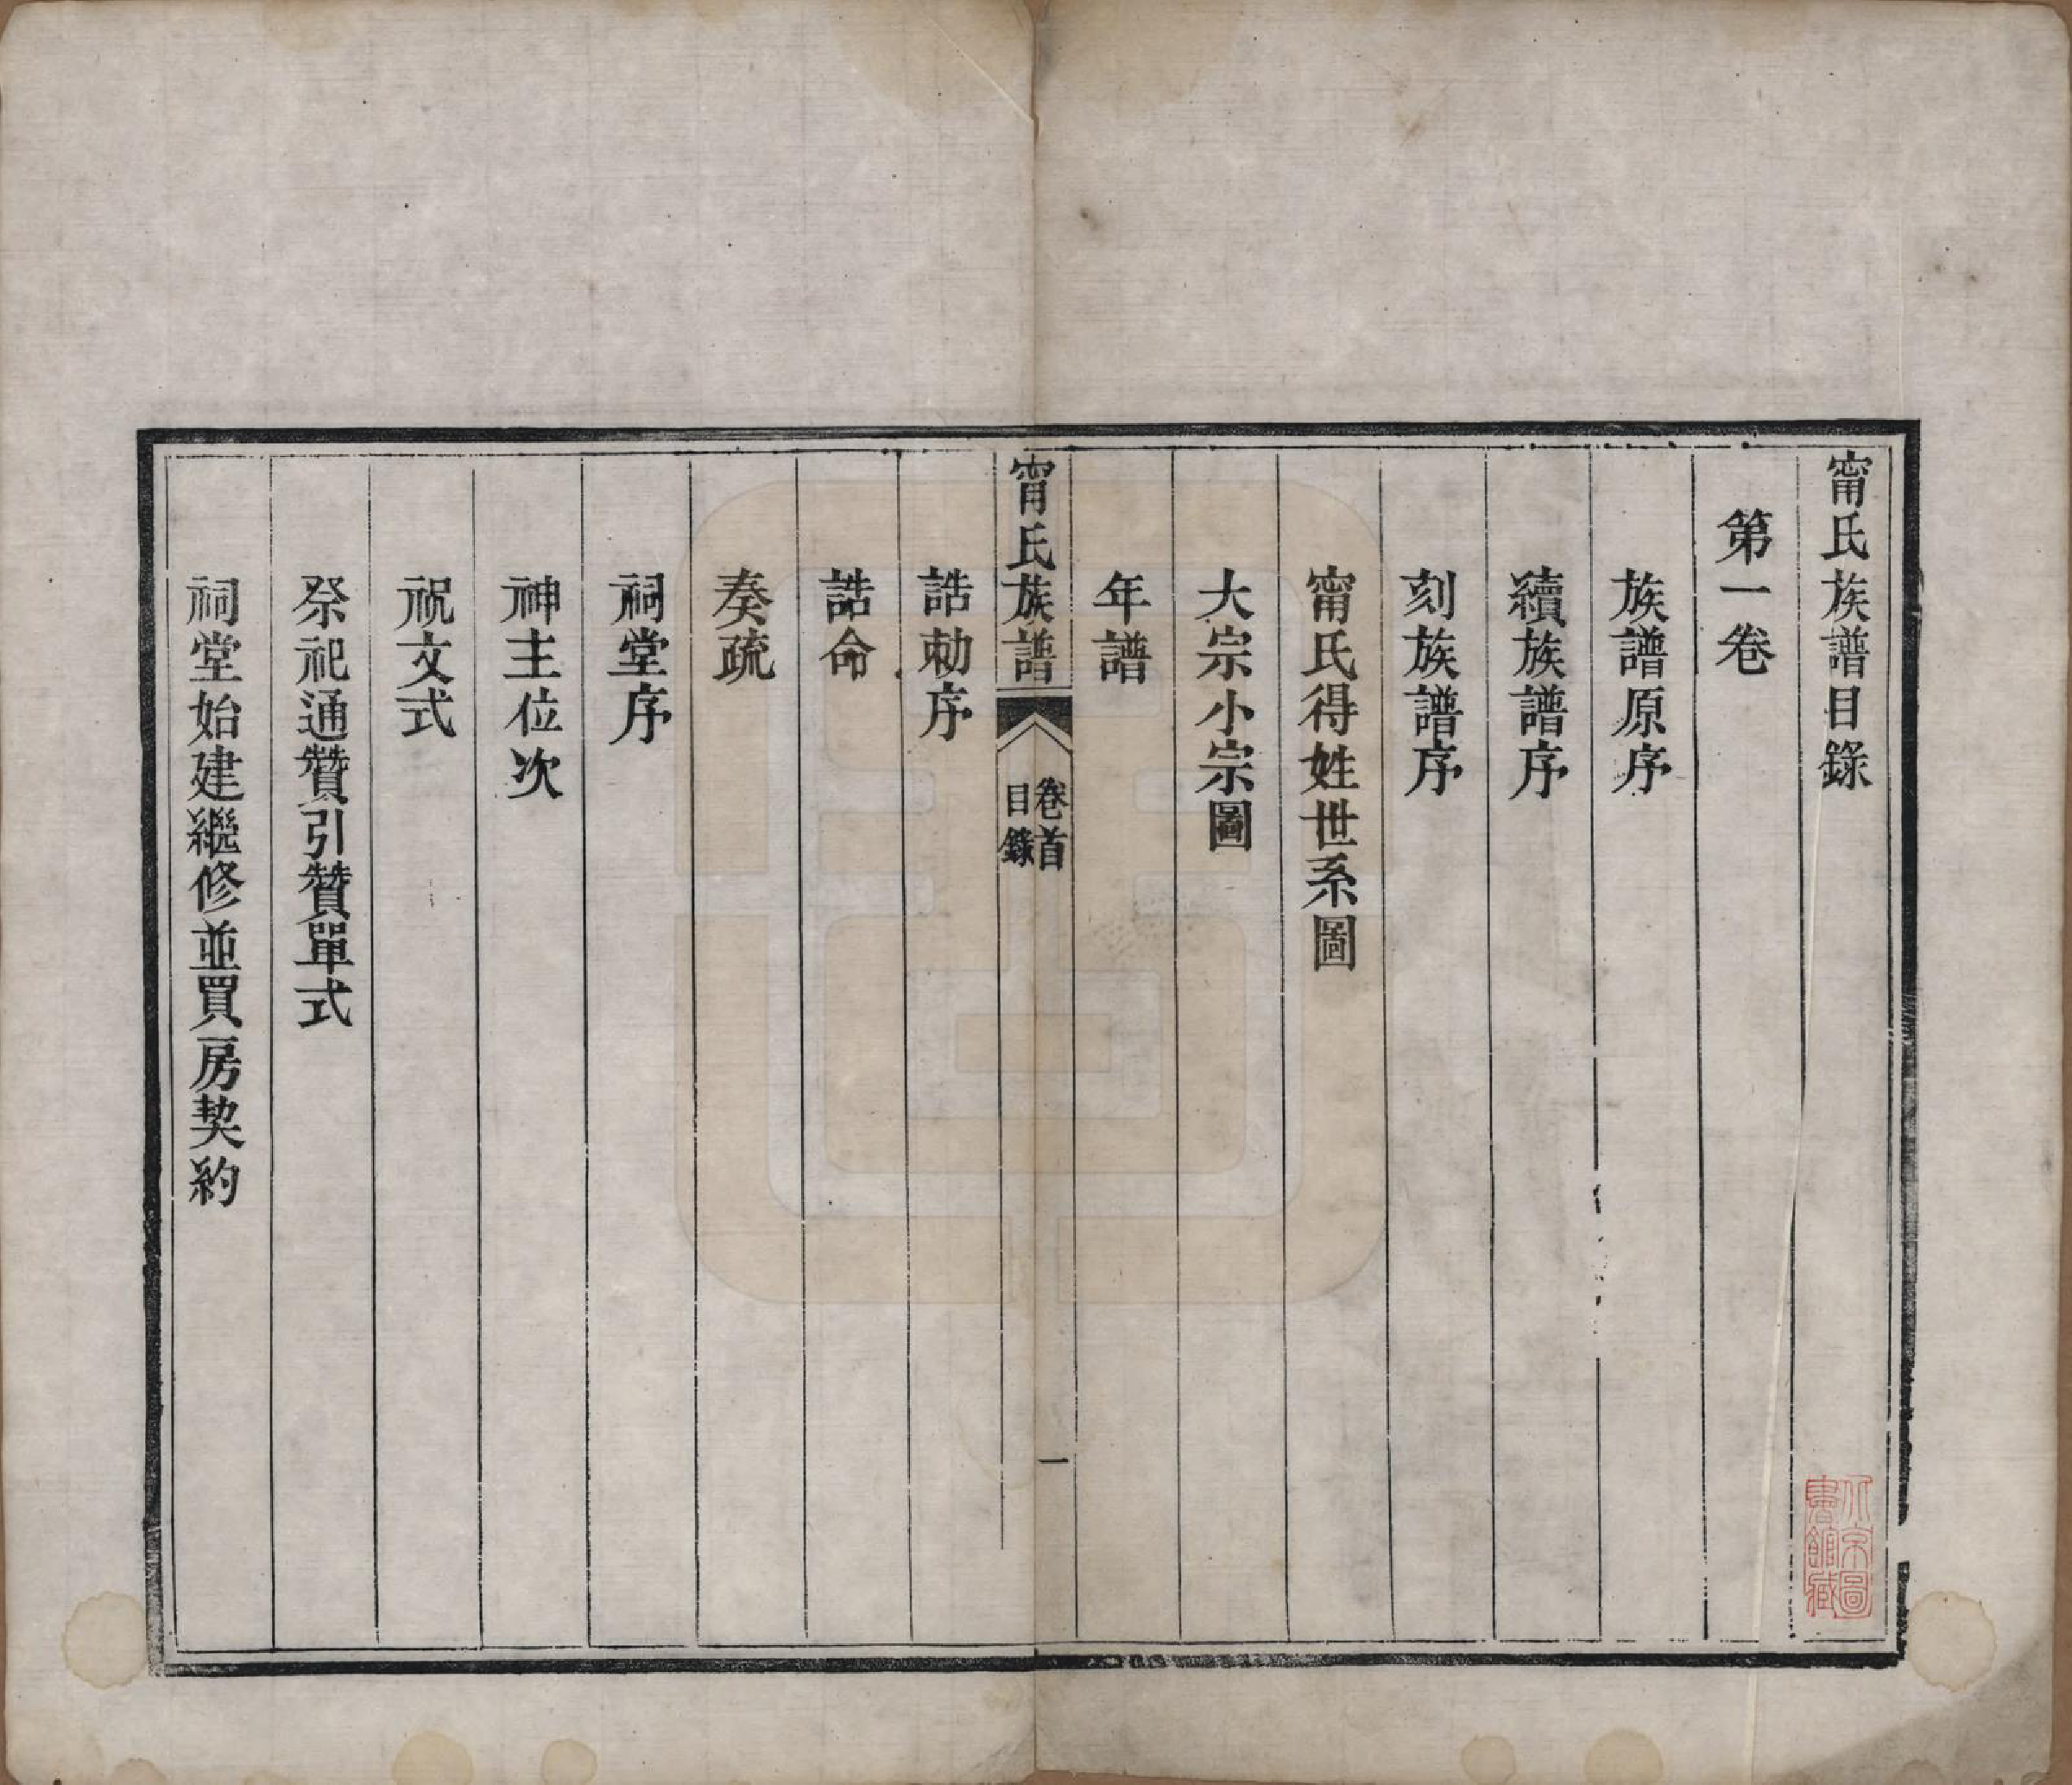 甯氏族譜目錄
第一卷
族譜原序
續族譜序
刻族譜序
甯氏得姓世系圖
大宗小宗圖
年譜
甯氏族譜
卷首
目錄
一
誥勅序
誥命
奏疏
祠堂序
神主位次
祝文式
祭祀通贊引贊單式
祠堂始建繼修並買房契約
北京圖
書館藏